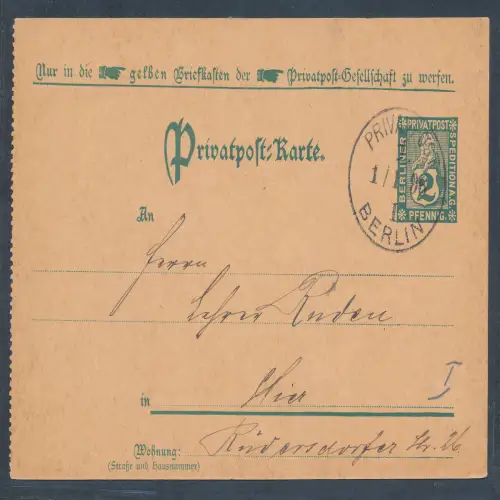 Nur in die gelben Briefkasten der Privatpost-Gesellschaft zu werfen.
Privatpost-Karte.
BERLINER PRIVATPOST SPEDITION A.G.
2
PFENNIG.
BERLIN
An
Herrn
Lehrer Ruden
in Hier
I
Wohnung: Rüdersdorfer Str. 26
(Straße und Hausnummer)